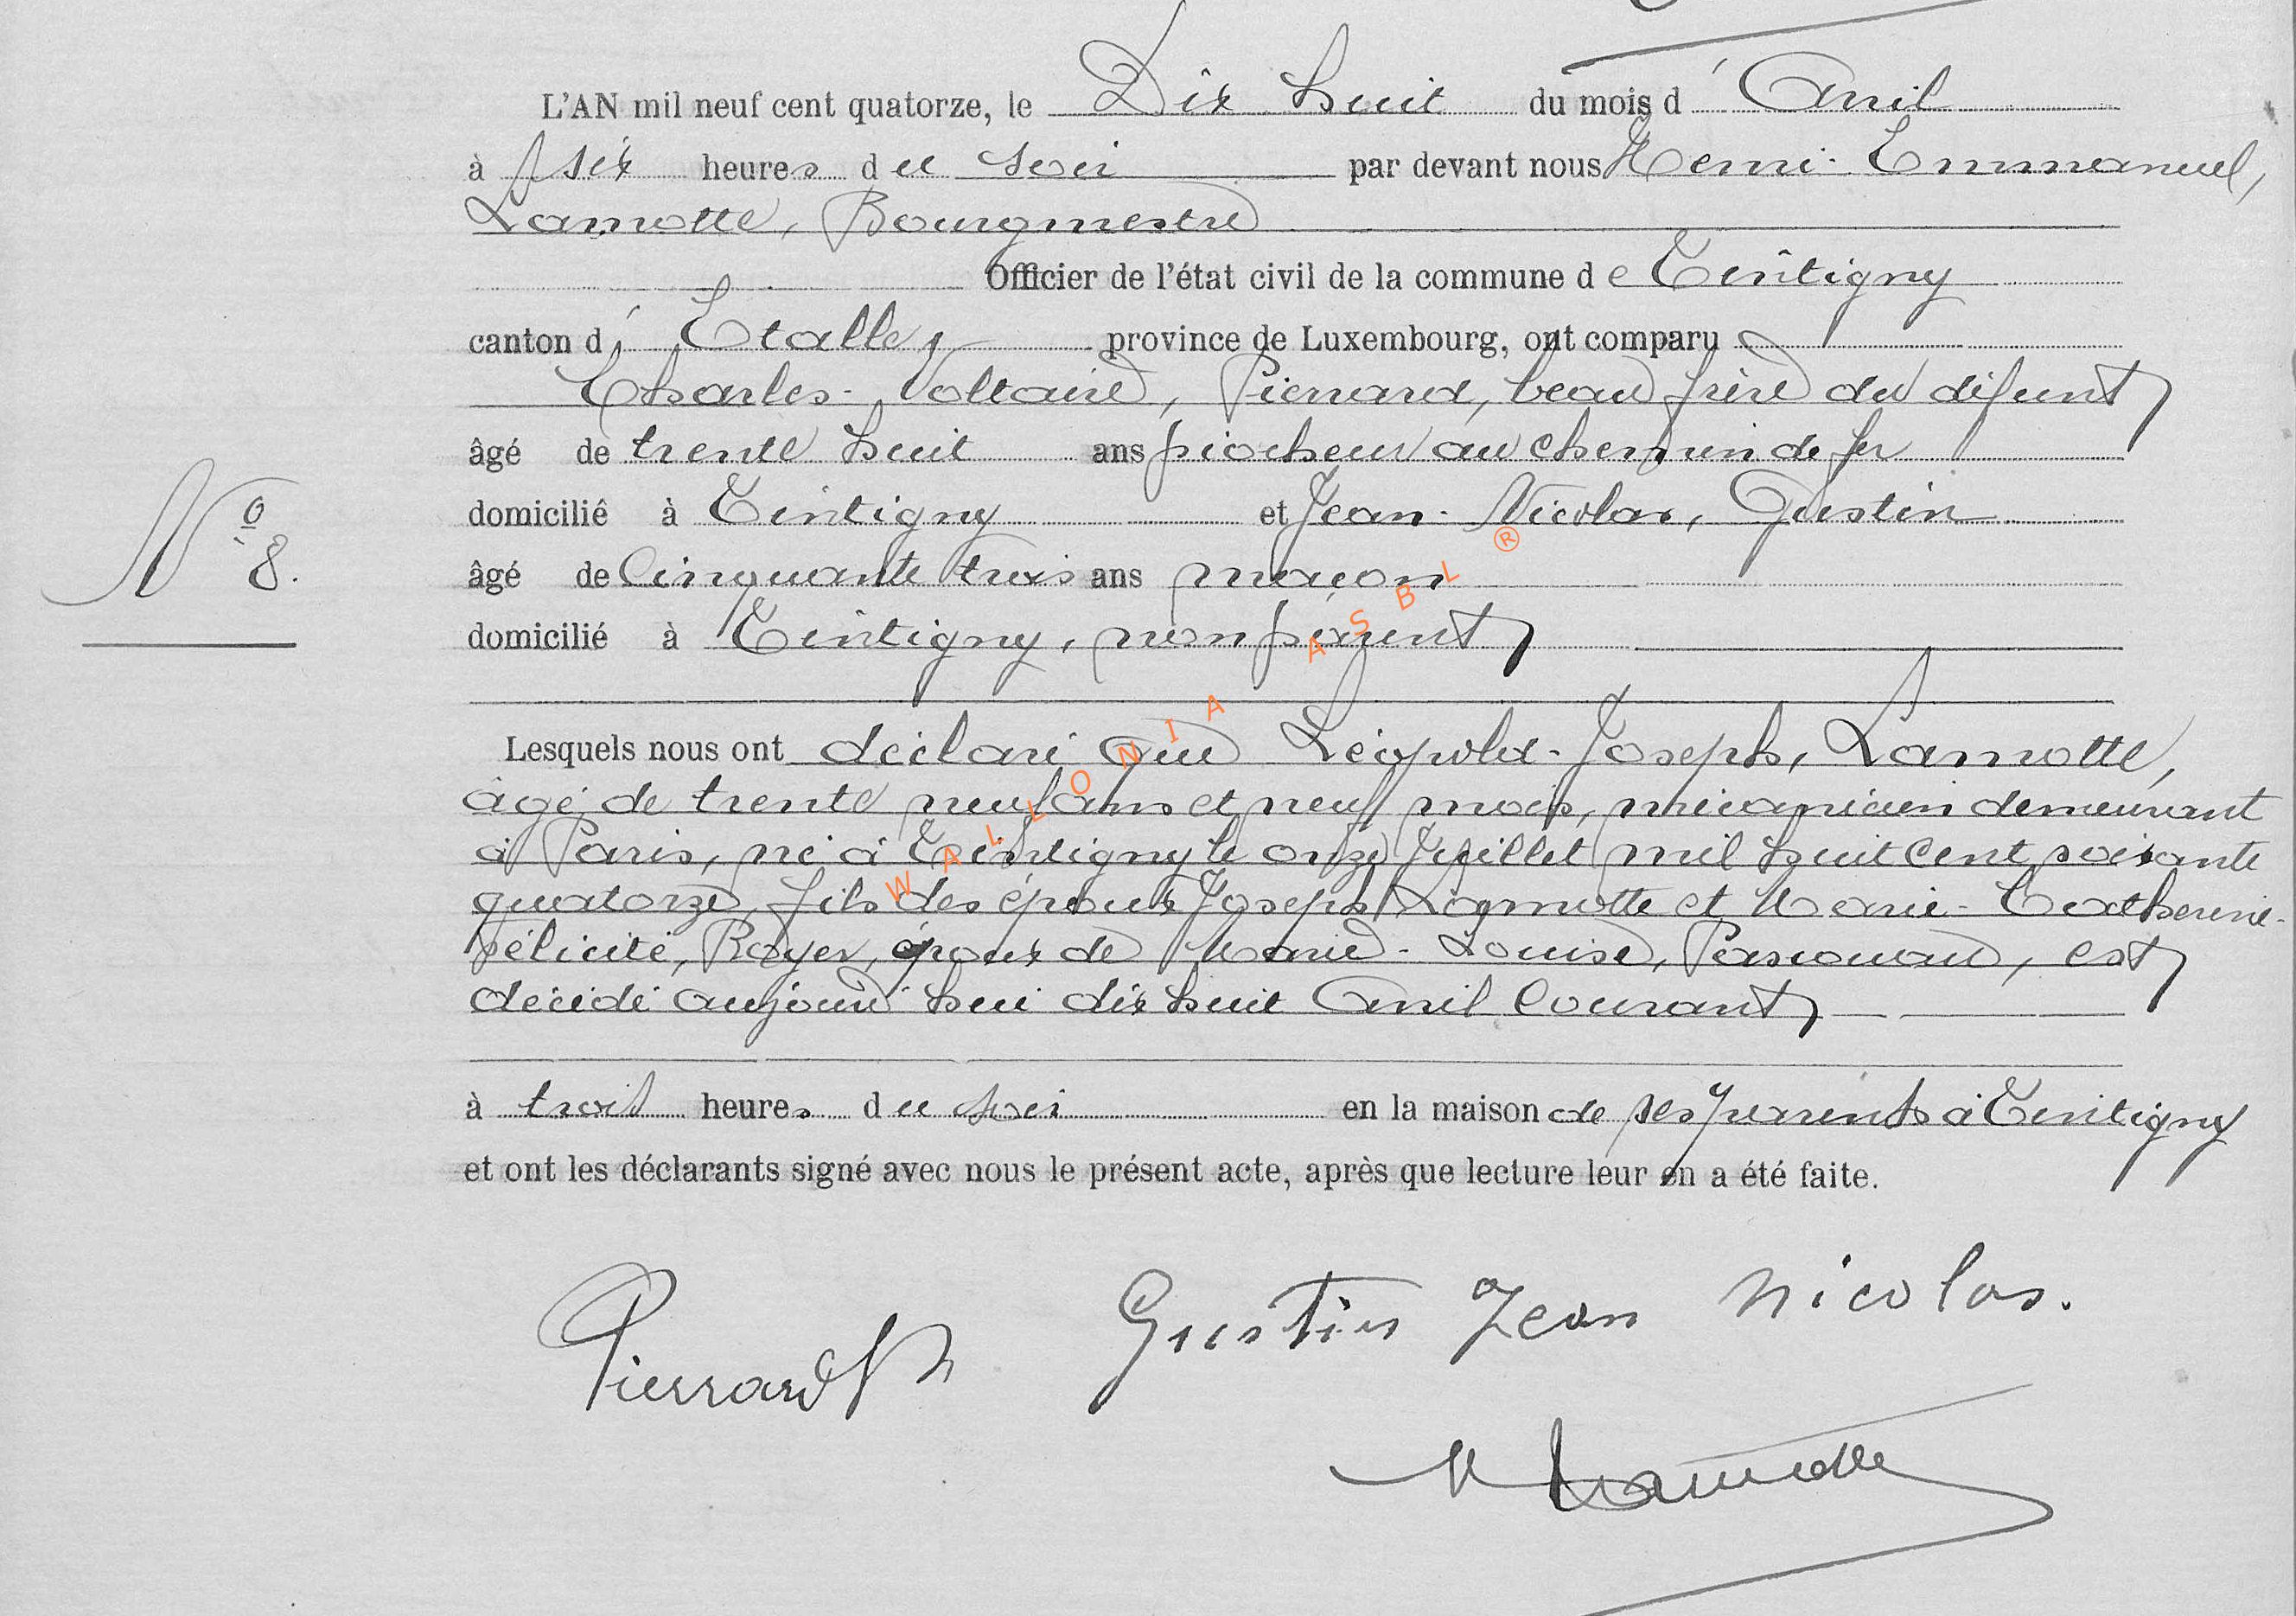 L'AN mil neuf cent quatorze, le Dix huit du mois d'Avril
à six heures du soir par devant nous Henri-Emmanuel,
Lamotte, Bourgmestre
Officier de l'état civil de la commune de Tintigny
canton d'Etalle, province de Luxembourg, ont comparu
Charles-Voltaire, Pierrard, beau frère du défunt
âgé de trente huit ans piocheur au chemin de fer
domicilié à Tintigny et Jean-Nicolas, Gustin
N° 8.
âgé de Cinquante trois ans maçon
domicilié à Tintigny, non parent
Lesquels nous ont déclaré que Léopold-Joseph, Lamotte,
âgé de trente neuf ans et neuf mois, mécanicien demeurant
à Paris, né à Tintigny le onze Juillet mil huit Cent soixante
quatorze, fils des époux Joseph Lamotte et Marie-Catherine-
Félicité, Royer, époux de Marie-Louise, est
décédé aujourd'hui dix huit Avril Courant
à trois heures du soir en la maison de ses parents à Tintigny
et ont les déclarants signé avec nous le présent acte, après que lecture leur en a été faite.
Pierrard Gustin Jean Nicolas.
Lamotte
WALLONIA ASBL ®